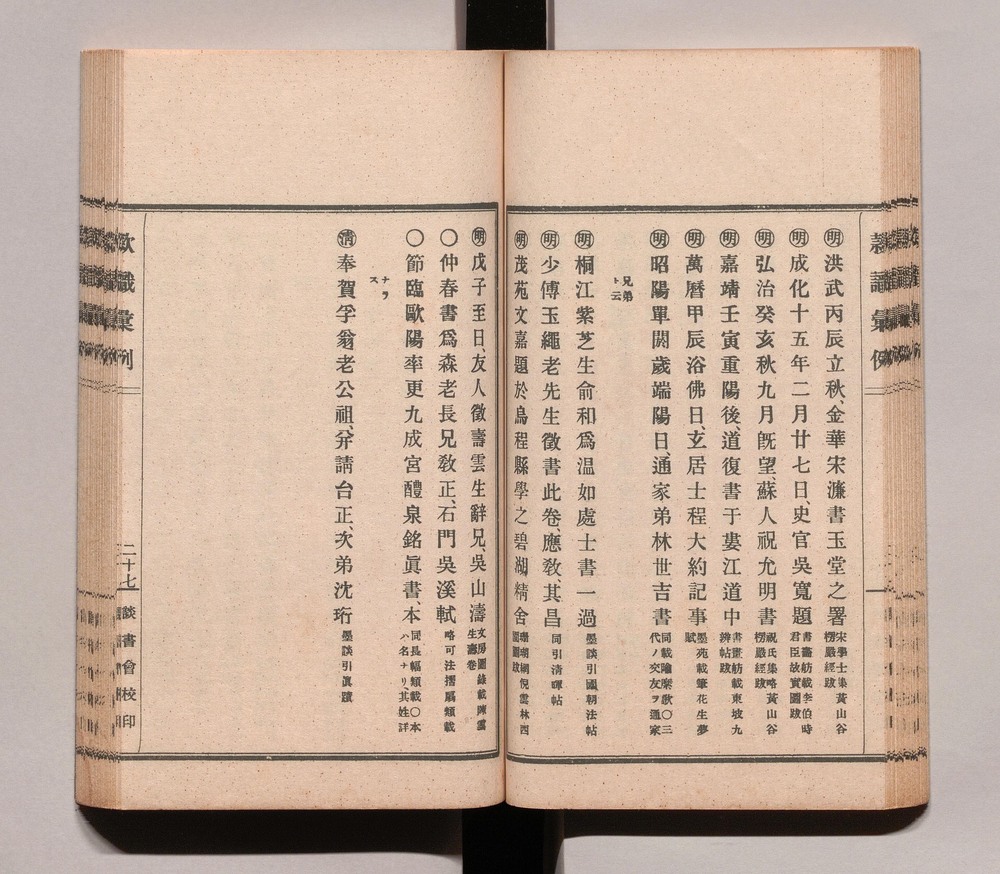 ㊔洪武丙辰立秋、金華宋濂書玉堂之署 宋學士集黃山谷楞嚴經跋
㊔成化十五年二月廿七日、史官吳寬題 書畫舫載李伯時君臣故實圖跋
㊔弘治癸亥秋九月旣望、蘇人祝允明書 祝氏集略黃山谷楞嚴經跋
㊔嘉靖壬寅重陽後道復書于婁江道中 書畫舫載東坡九辨帖跋
㊔萬曆甲辰浴佛日、玄居士程大約記事 墨苑載筆花生夢賦
㊔昭陽單閼歲端陽日、通家弟林世吉書 同載隃麋歌〇三代ノ交友ヲ通家
兄弟ト云
㊔桐江紫芝生俞和爲温如處士書一過 墨談引國朝法帖
㊔少傅玉繩老先生徵書此卷、應敎、其昌 同引淸暉帖
㊔茂苑文嘉題於烏程縣學之碧湖精舍 珊瑚網倪雲林西園圖跋
㊔戊子至日、友人徵壽雲生辭兄、吳山濤 文房圖錄載陳雲生壽卷
〇仲春書爲森老長兄敎正、石門吳溪軾 略可法摺扇類載
〇節臨歐陽率更九成宮醴泉銘眞書、本 同長幅類載〇本ハ名ナリ其姓詳
ナラス
淸奉賀孚翁老公祖、弁請台正、次弟沈珩 墨談引眞蹟
款識彙例
二十七
談書會校印